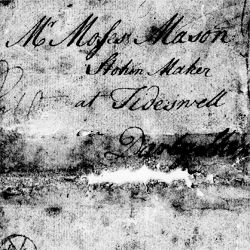 Mr Moses Mason
Stokin Maker
at Tideswell
Derbyshire